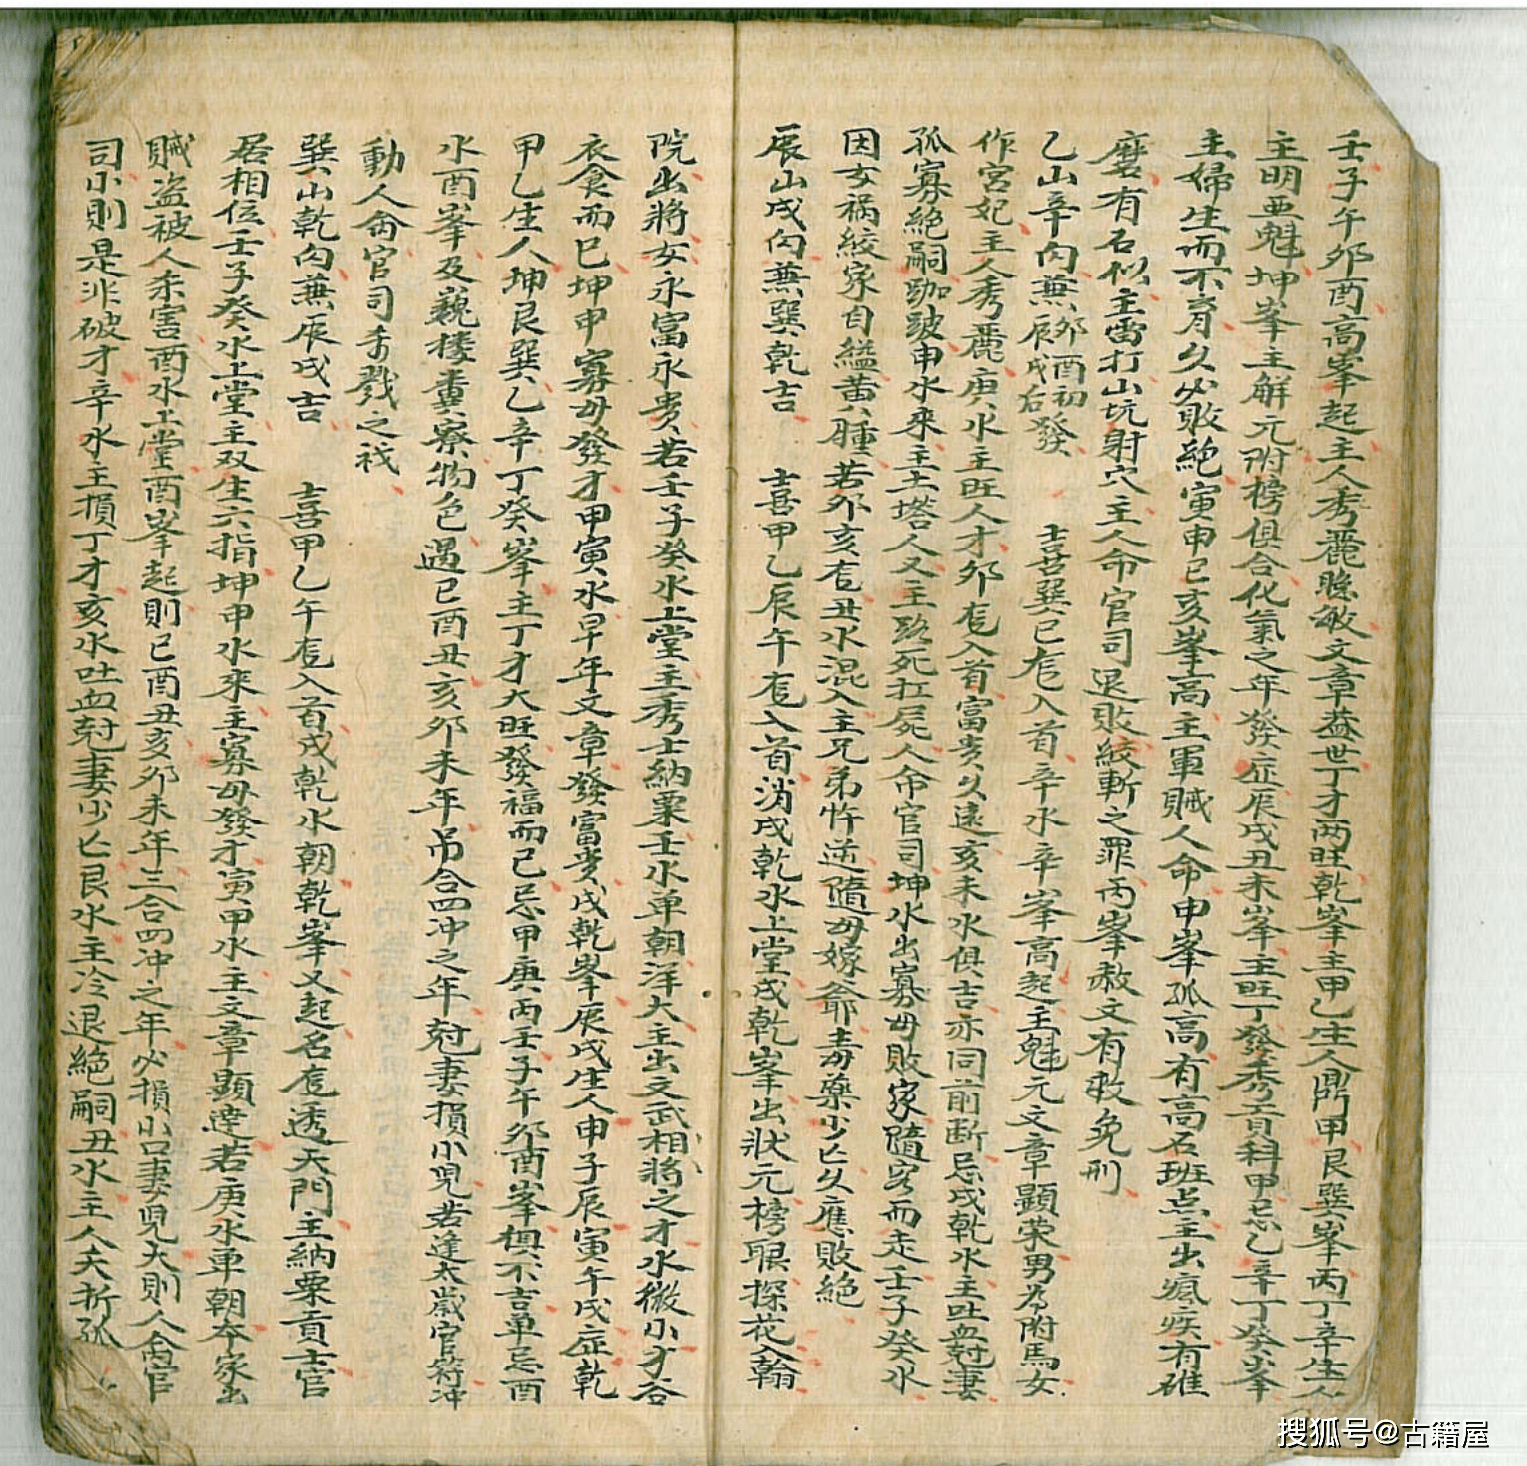 壬子午邜酉高峯起主人秀麗聰敏文章蓋世丁才两旺乾峯主甲乙生人鼎甲艮巽峯丙丁辛生人
主明亜魁坤峯主解元附榜俱合化氣之年發应辰戌丑未峯主旺丁發秀貢科甲忌乙辛丁癸峯
主婦生而不育久必敗絶寅申巳亥峯高主軍賊人命申峯孤高有高石班点主出瘋疾有碓
磨有石似主雷打山坑射穴主人命官司退敗絞斬之罪丙峯赦文有救免刑
乙山辛向兼邜酉初發辰戌右發 吉喜巽巳龙入首辛水辛峯高起主魁元文章顯荣男為附馬女
作宮妃主人秀麗庚水主旺人才邜龙入首富貴久遠亥未水俱吉亦同前断忌戌乾水主吐血尅妻
孤寡絶嗣跏跛申水來主土塔人又主路死扛屍人命官司坤水出寡母敗家隨客而走壬子癸水
因女禍絞家自縊黄腫若邜亥龙丑水混入主兄弟忤逆隨母嫁爺毒藥少亡久應敗絶
辰山戌向兼巽乾吉 喜甲乙辰午龙入首消戌乾水上堂戌乾峯出狀元榜眼探花入翰
院出將女永富永贵若壬子癸水上堂主秀士納粟壬水单朝洋大主出文武相將之才水微小才谷
衣食而巳坤申寡母發才甲寅水早年文章發富贵戌乾峯辰戌生人申子辰寅午戌应乾
甲乙生人坤艮巽乙辛丁癸峯主丁才大旺發福而已忌甲庚丙壬子午邜酉峯俱不吉单忌酉
水酉峯及巍楼糞寮物色遇巳酉丑亥邜未年吊合四冲之年尅妻損小児若逢太歲官符冲
動人命官司秀戮之祸
巽山乾向兼辰戌吉 喜甲乙午龙入首戌乾水朝乾峯又起名龙透天門主納粟貢士官
居相位壬子癸水上堂主双生六指坤申水來主寡母發才寅甲水主文章顯達若庚水单朝本家出
賊盗被人杀害酉水上堂酉峯起則巳酉丑亥邜未年三合四冲之年必損小口妻児大則人命官
司小則是非破才辛水主損丁才亥水吐血尅妻少亡艮水主冷退絶嗣丑水主人夭折孤
搜狐号@古籍屋